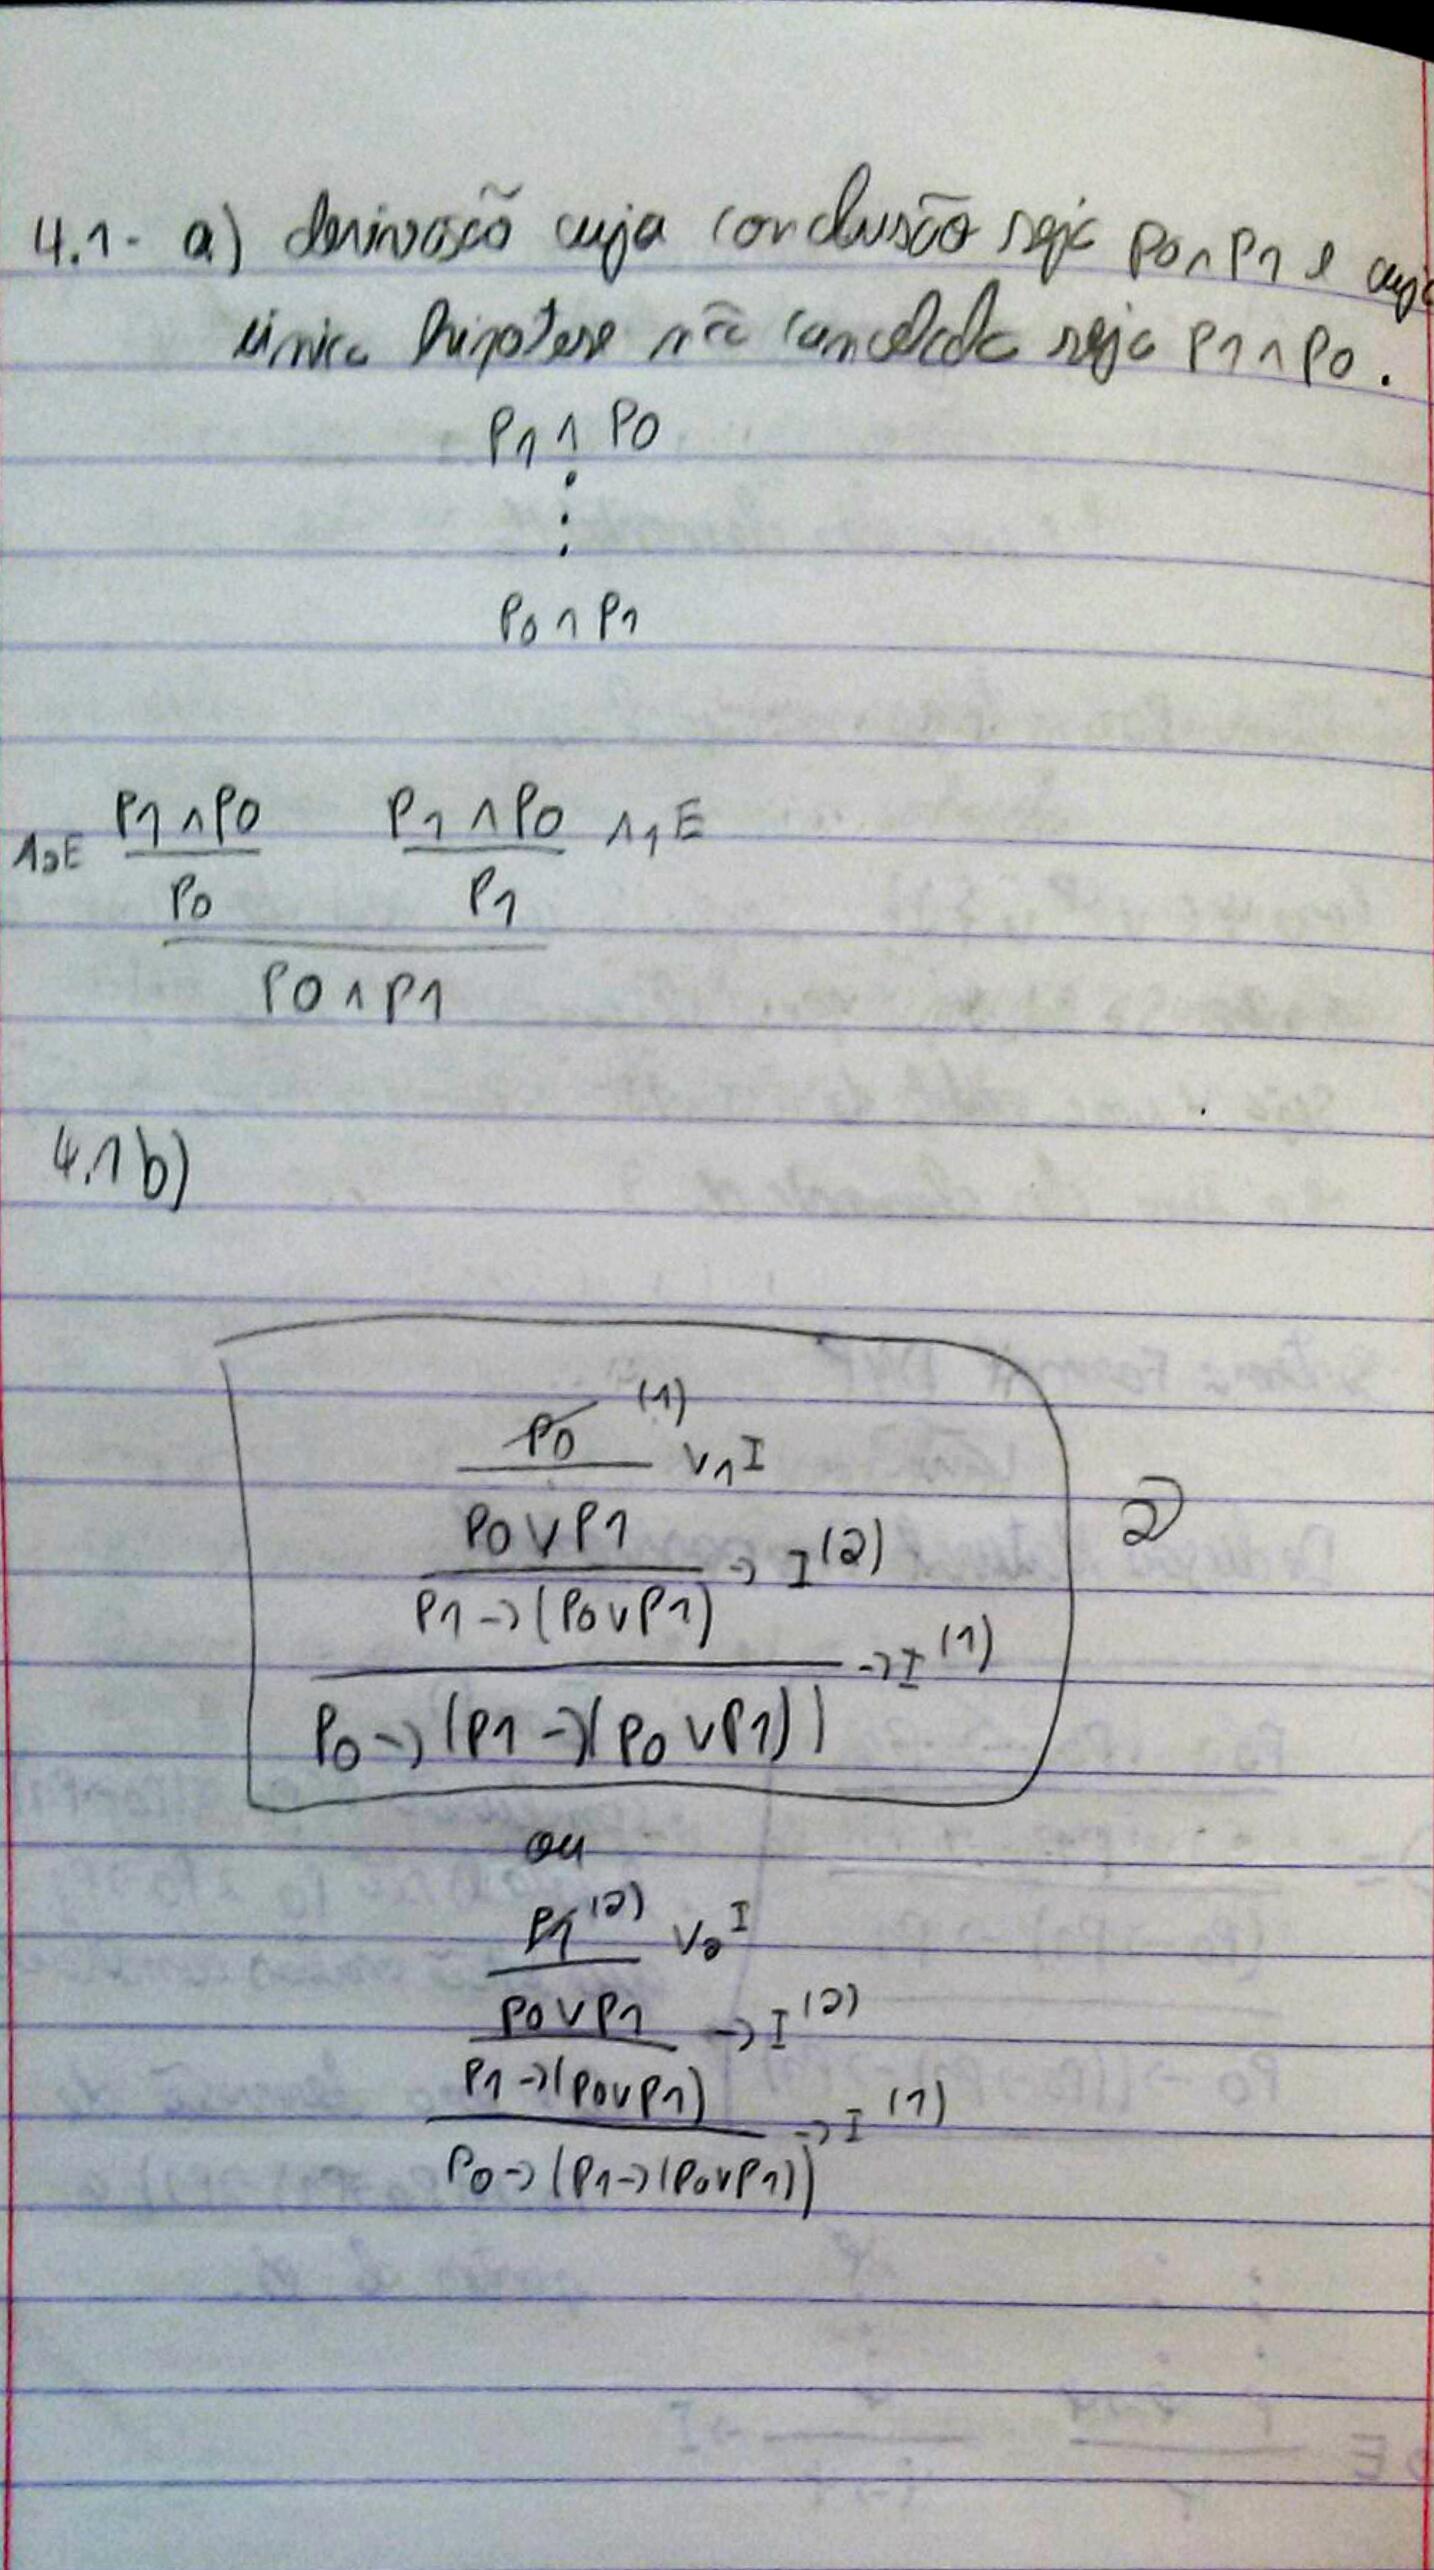 4.1- a) derivação cuja conclusão seja p0∧p1 e cuja
única hipótese não cancelada seja p1∧p0.
p1 ∧ p0
⋮
p0 ∧ p1
∧2E p1∧p0 p1∧p0 ∧1E
p0 p1
p0∧p1
4.1b)
p0 (1) ∨1I
p0∨p1 →I(2)
p1→(p0∨p1) →I(1)
p0→(p1→(p0∨p1))
ou
p1(2) ∨2I
p0∨p1 →I(2)
p1→(p0∨p1) →I(1)
p0→(p1→(p0∨p1))